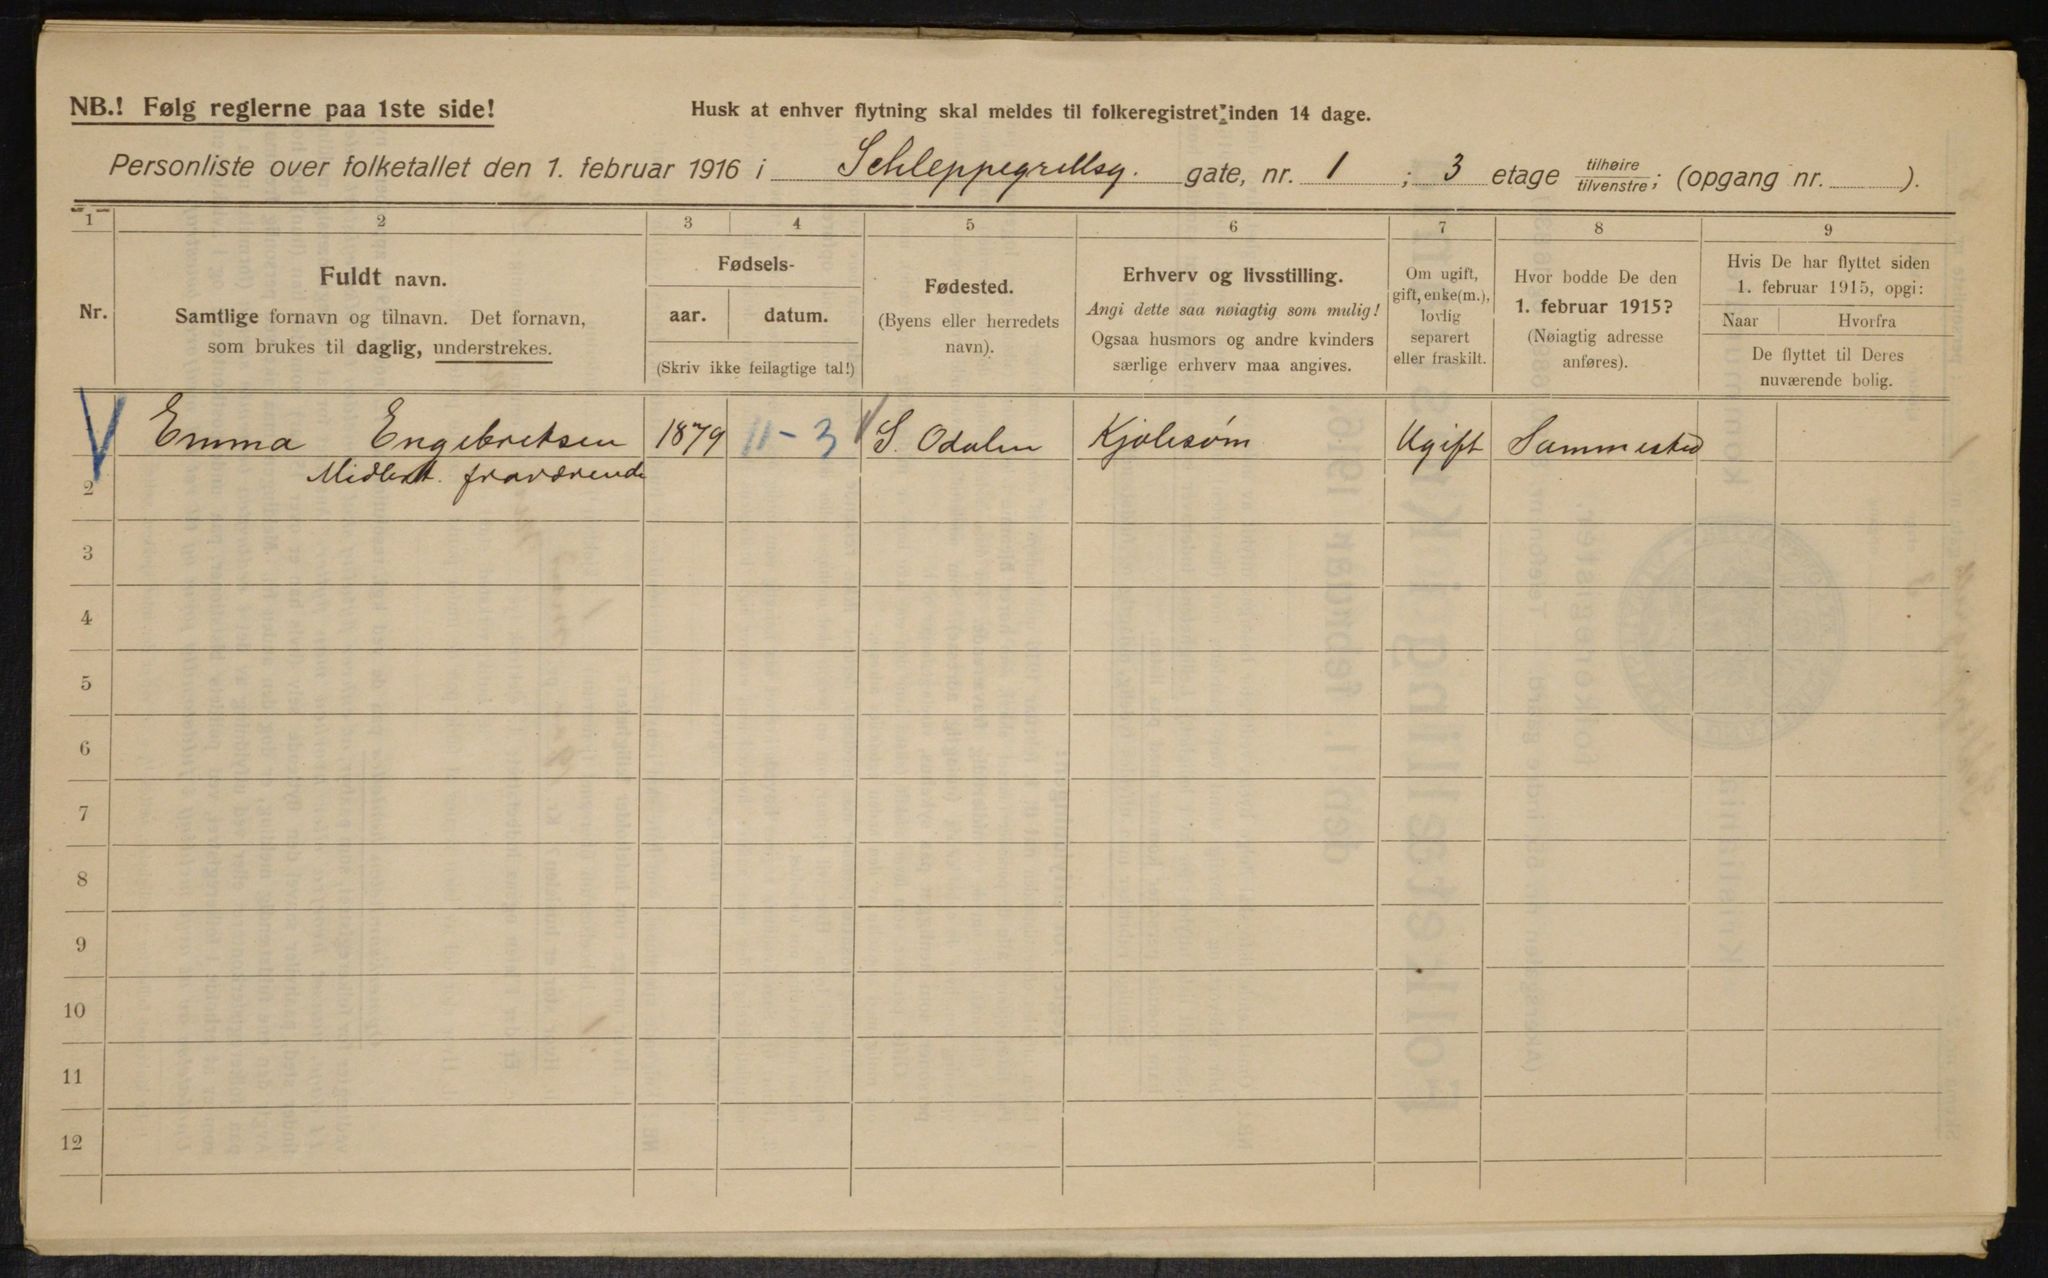 NB.! Følg reglerne paa 1ste side!
Husk at enhver flytning skal meldes til folkeregistret inden 14 dage.
Personliste over folketallet den 1. februar 1916 i Schleppegrellsg. gate, nr. 1 ; 3 etage tilhøire/tilvenstre; (opgang nr. ).
1 2 3 4 5 6 7 8 9
Nr.
Fuldt navn.
Samtlige fornavn og tilnavn. Det fornavn,
som brukes til daglig, understrekes.
Fødsels-
aar. datum.
(Skriv ikke feilagtige tal!)
Fødested.
(Byens eller herredets
navn).
Erhverv og livsstilling.
Angi dette saa nøiagtig som mulig!
Ogsaa husmors og andre kvinders
særlige erhverv maa angives.
Om ugift,
gift, enke(m.),
lovlig
separert
eller fraskilt.
Hvor bodde De den
1. februar 1915?
(Nøiagtig adresse
anføres).
Hvis De har flyttet siden
1. februar 1915, opgi:
Naar Hvorfra
De flyttet til Deres
nuværende bolig.
Emma Engebretsen 1879 11-3 S. Odalen Kjolesøm Ugift Sammested
2 Midlert. fraværende
3
4
5
6
7
8
9
10
11
12